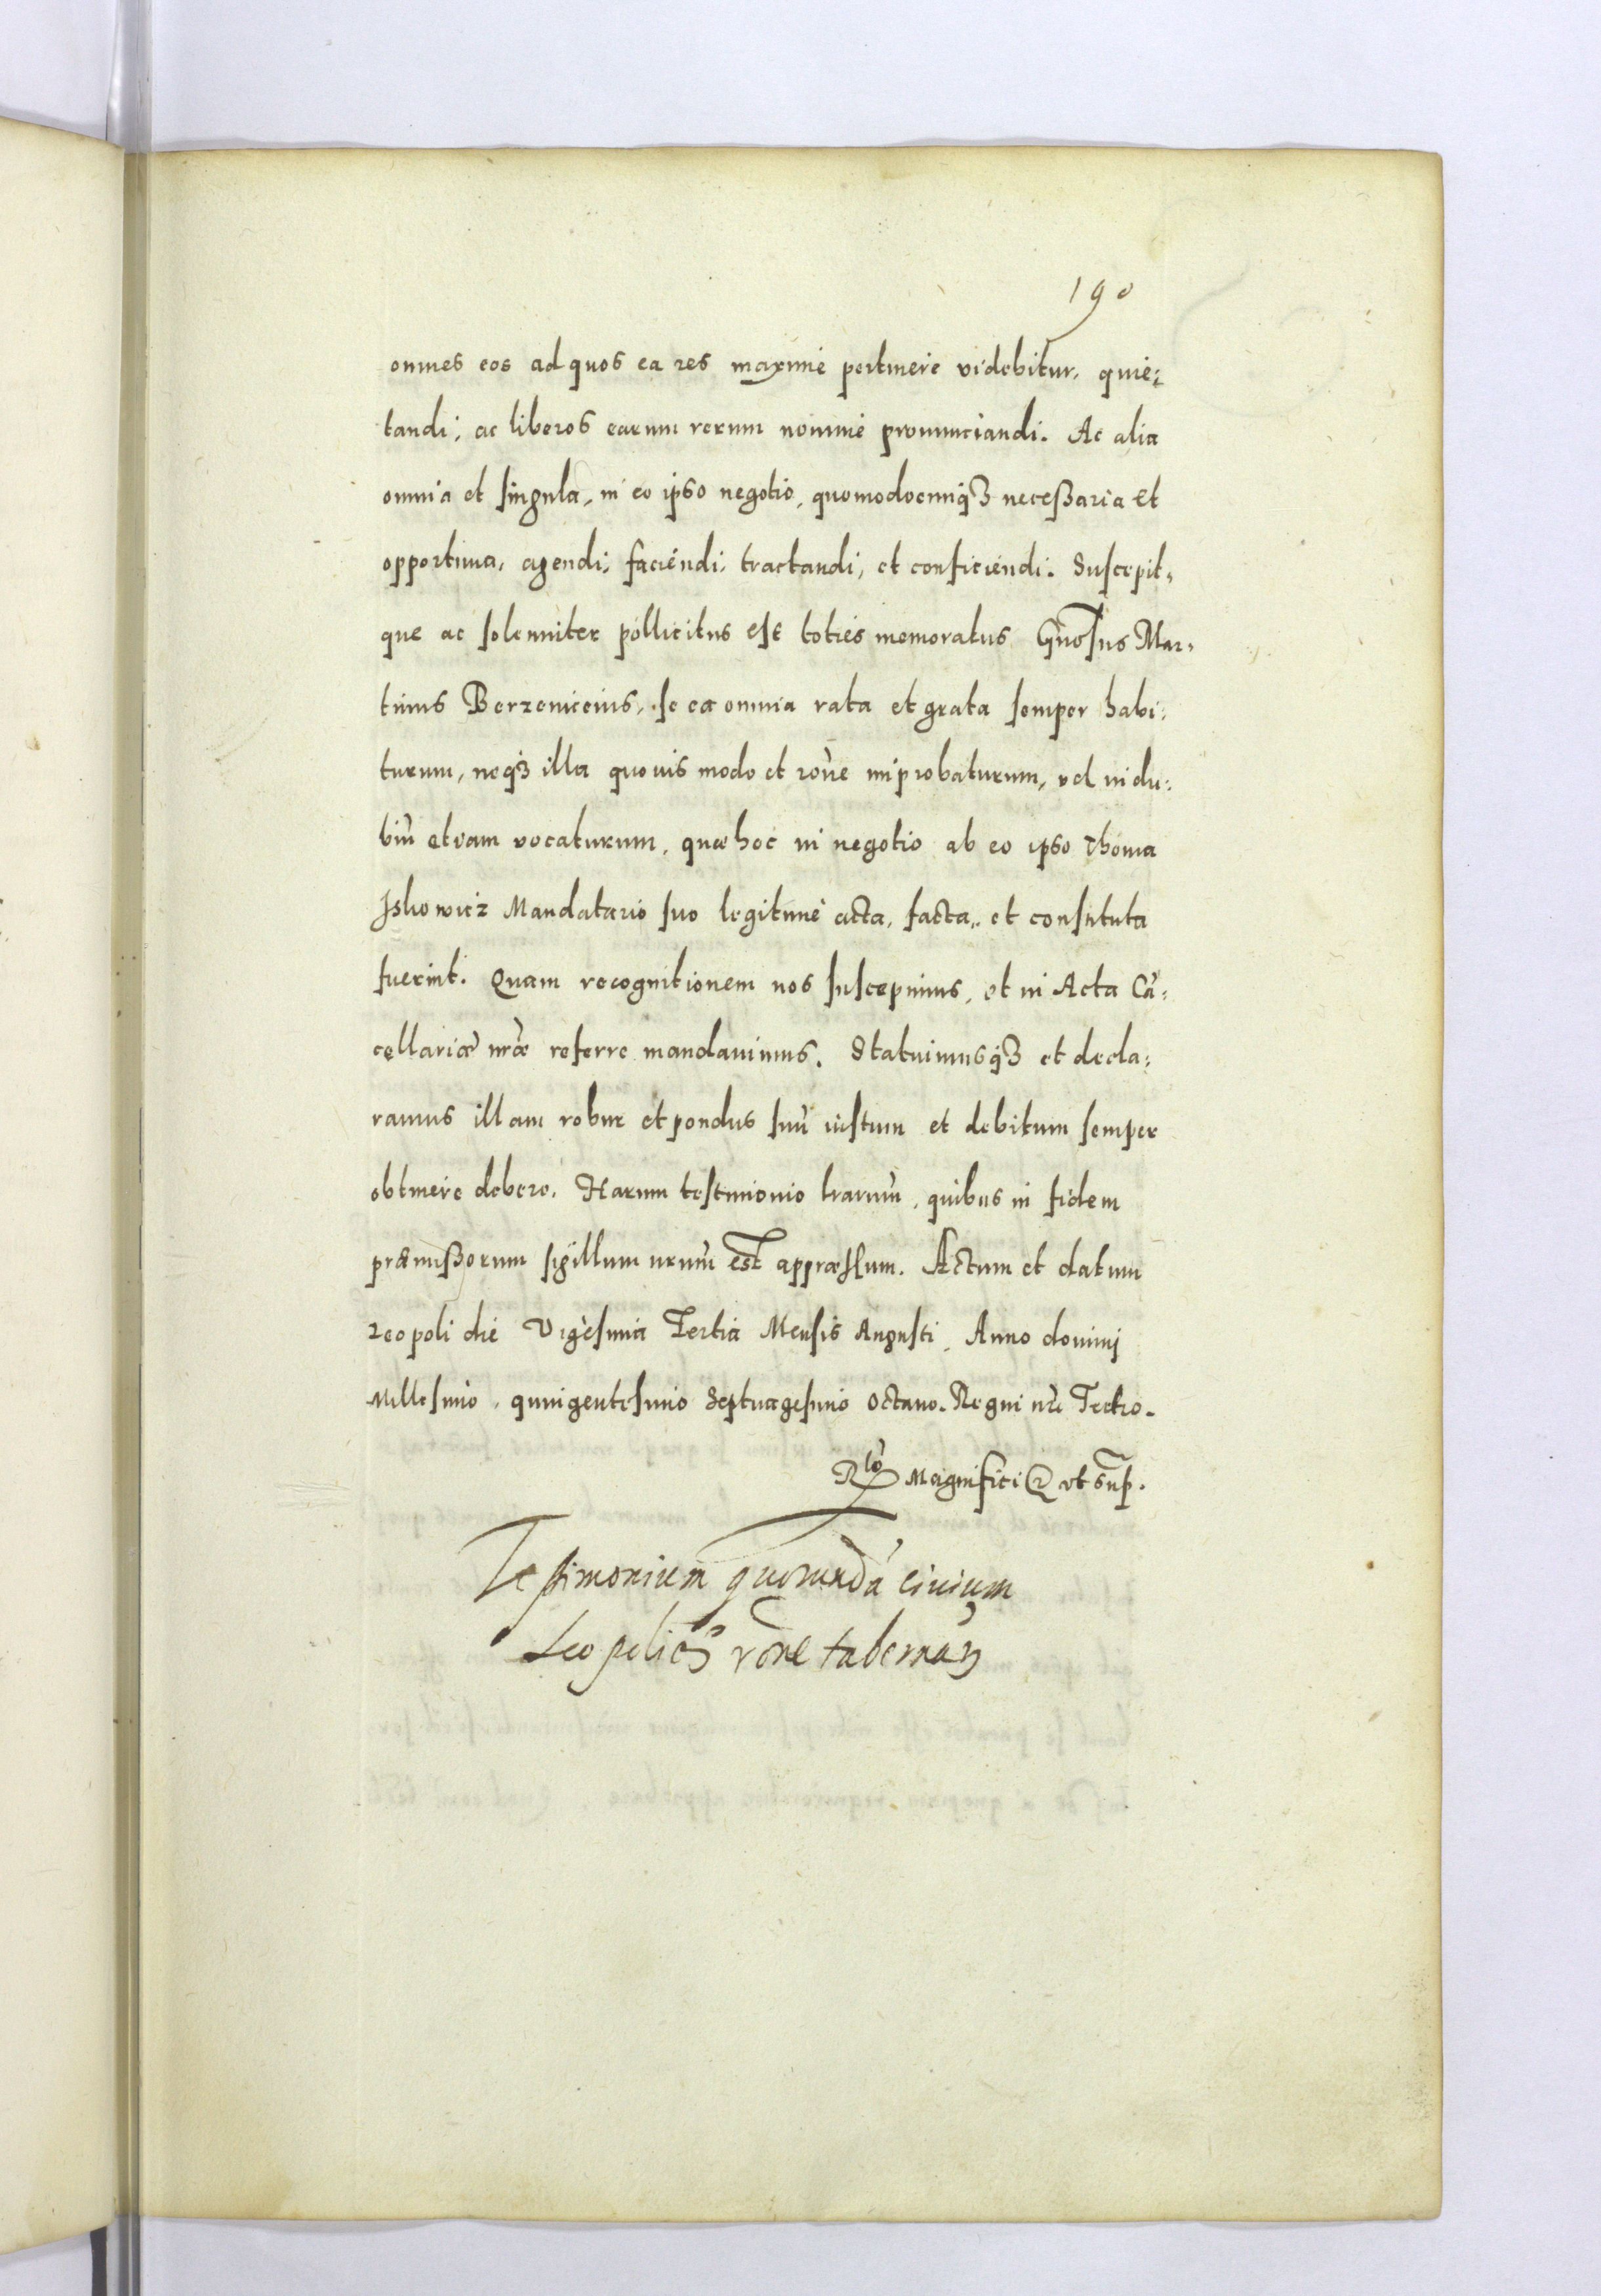 190
omnes eos ad quos ea res maxime pertinere videbitur, quie:
tandi, ac liberos earum rerum nomine pronunciandi. Ac alia
omnia et singula, in eo ipso negotio, quomodocunq3 necessaria et
opportuna, agendi, faciendi, tractandi, et conficiendi. Suscepit,
que ac solenniter pollicitus est toties memoratus Gnosus Mar,
tinus Berzeniceius, se ea omnia rata et grata semper habi:
turum, neq3 illa quovis modo et rone improbaturum, vel in du:
biu etiam vocaturum, quae hoc in negotio ab eo ipso Thoma
Iskowicz Mandatario suo legitime acta, facta, et constituta
fuerint. Quam recognitionem nos suscepimus, et in Acta Cā:
cellariae nrae referre mandavimus. Statuimusq3 et decla:
ramus illam robur et pondus suū iustum et debitum semper
obtinere debere. Harum testimonio lrarum, quibus in fidem
praemissorum sigillum nrum est appraessum. Actum et datum
Leopoli die Vigesima Tertia Mensis Augusti, Anno domini
Millesimo, quingentesimo Septuagesimo Octavo. Regni nri Tertio.
Rlo Magnifici ut sup.
Testimonium quorundā civium
Leopolien rone tabernar